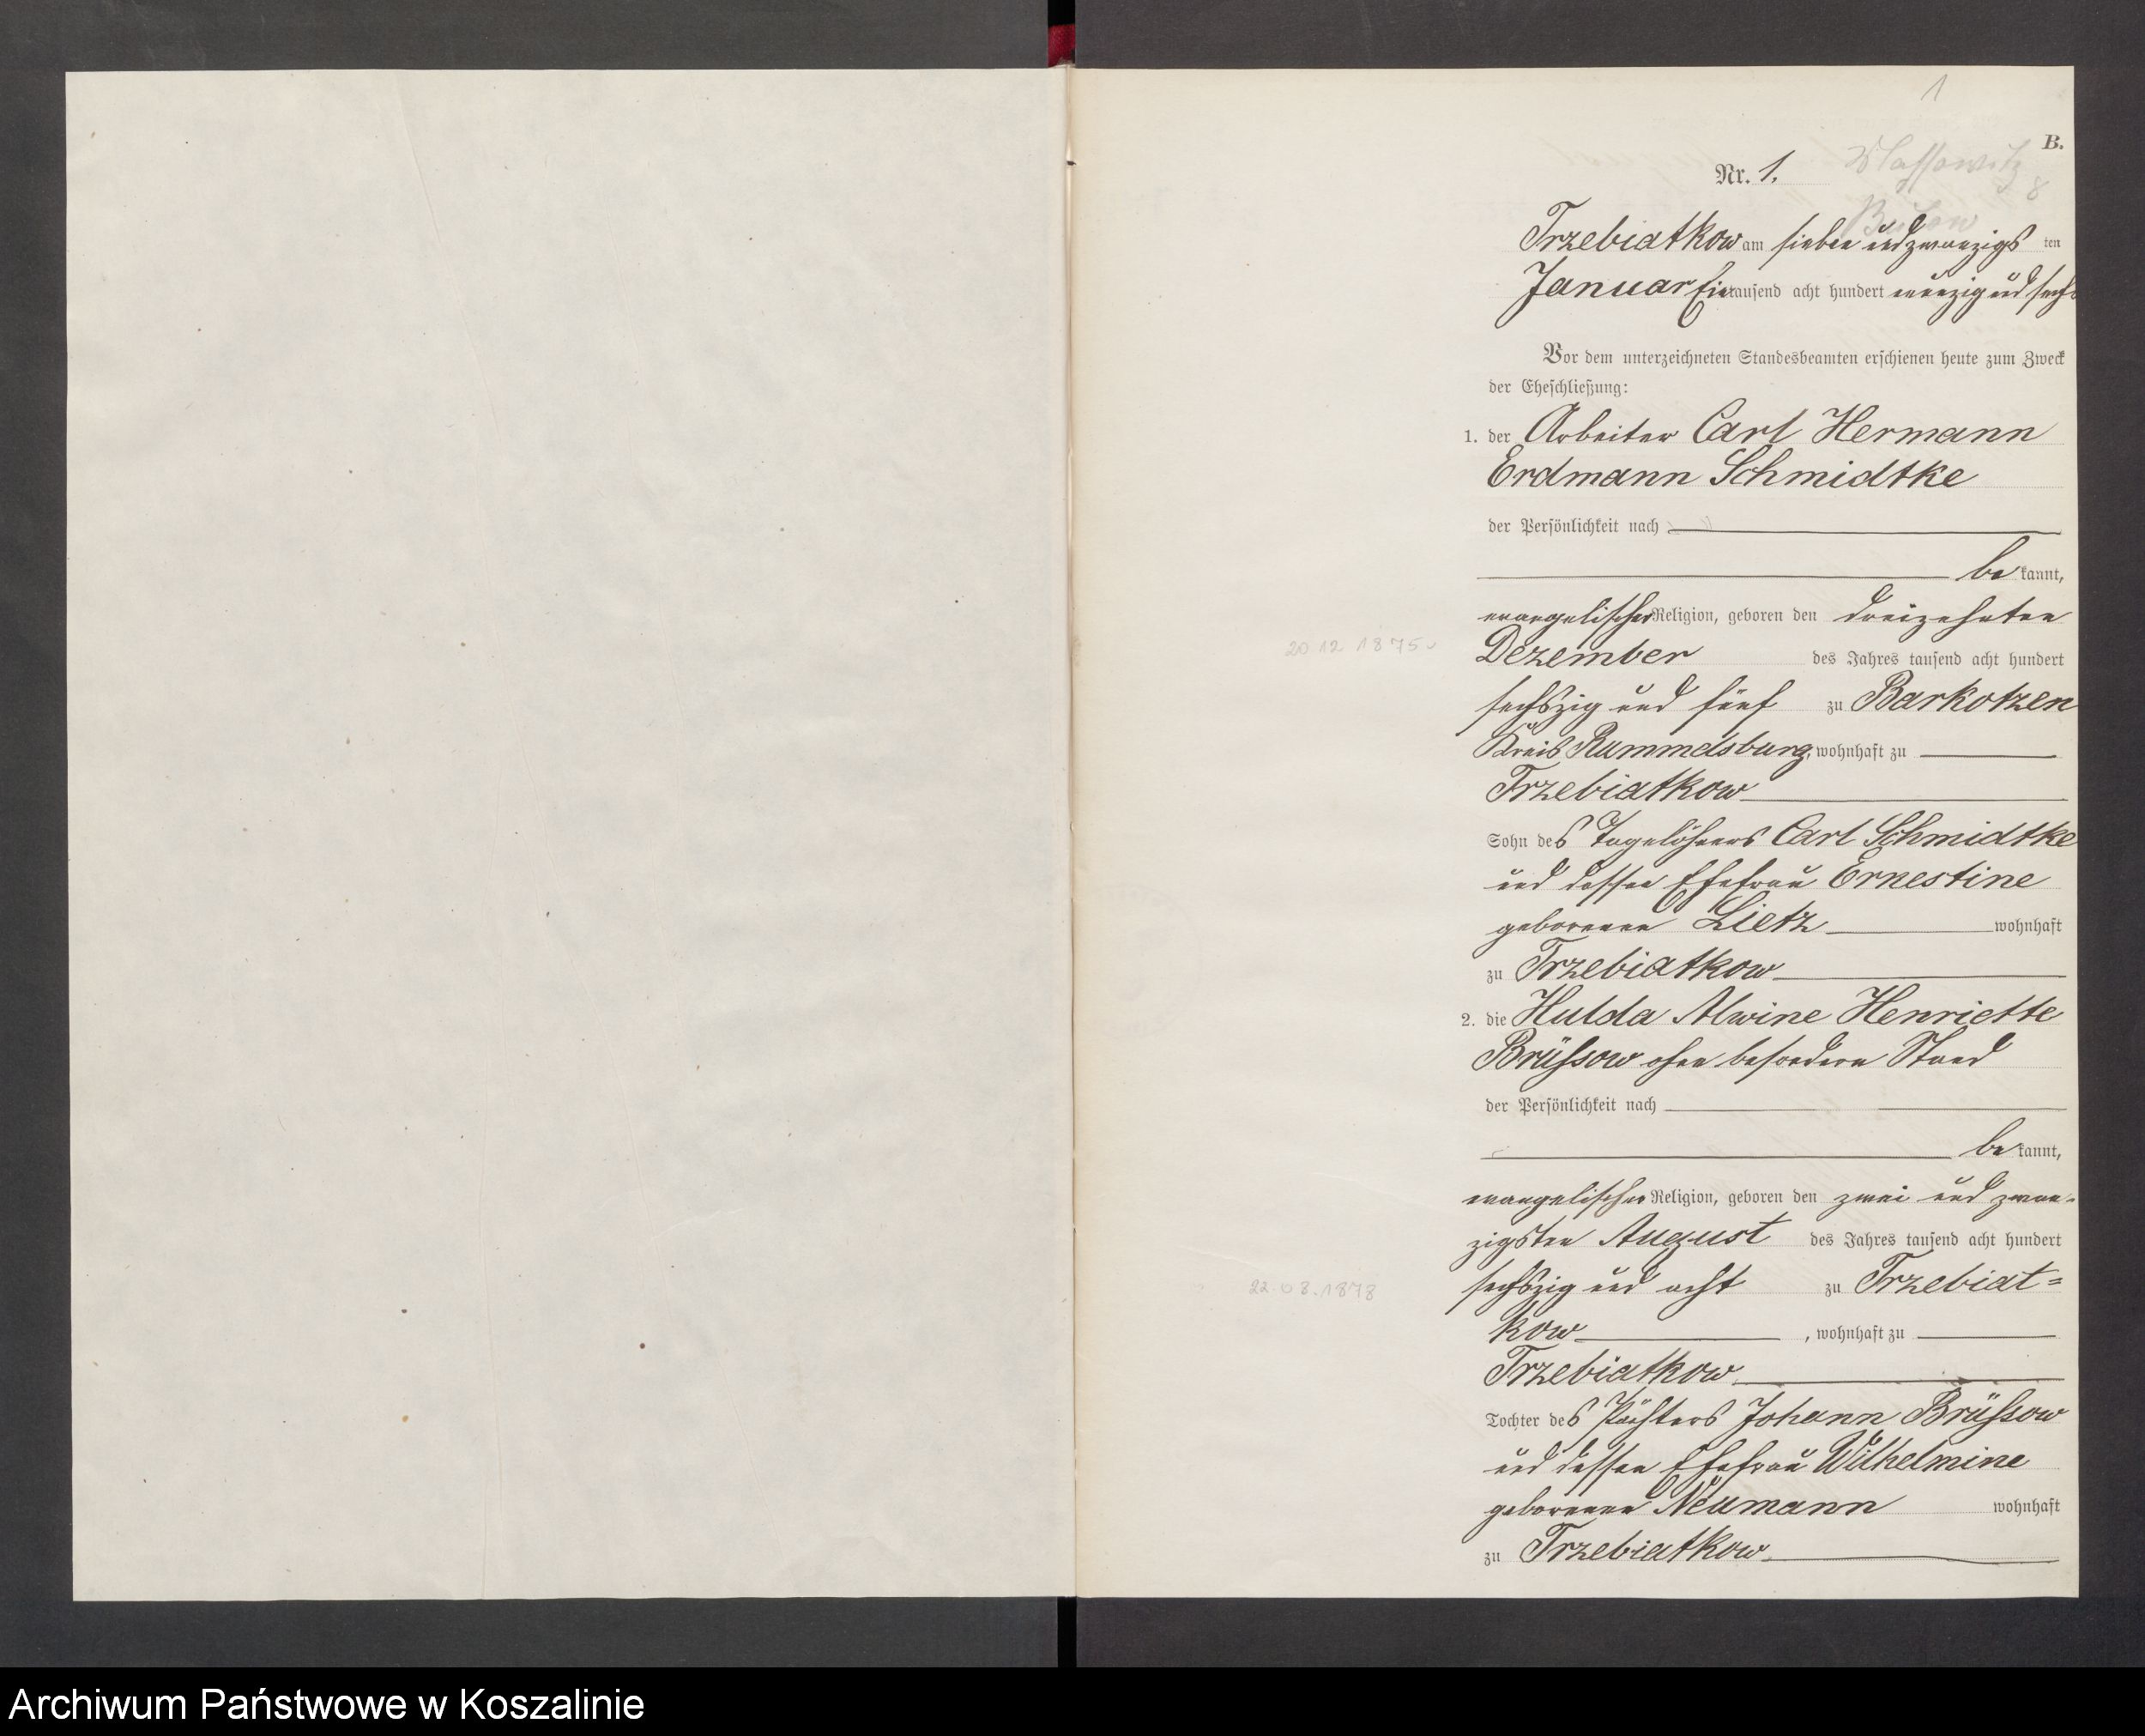 1
B.
Nr. 1.
Trzebiatkow am sieben und zwanzigsten
Januar Eintausend acht hundert neunzig und sechs
Vor dem unterzeichneten Standesbeamten erschienen heute zum Zweck
der Eheschließung:
1. der Arbeiter Carl Hermann
Erdmann Schmidtke
der Persönlichkeit nach
bekannt,
evangelischer Religion, geboren den dreizehnten
20 12 1875
Dezember des Jahres tausend acht hundert
sechszig und fünf zu Barkotzen
Kreis Rummelsburg, wohnhaft zu
Trzebiatkow
Sohn des Tagelöhners Carl Schmidtke
und dessen Ehefrau Ernestine
geborenen Lietz wohnhaft
zu Trzebiatkow
2. die Hulda Alwine Henriette
Brüßow ohne besondern Stand
der Persönlichkeit nach
bekannt,
evangelischer Religion, geboren den zwei und zwan-
zigsten August des Jahres tausend acht hundert
22.08.1878
sechszig und acht zu Trzebiat=
kow, wohnhaft zu
Trzebiatkow
Tochter des Pächters Johann Brüßow
und dessen Ehefrau Wilhelmine
geborenen Neumann wohnhaft
zu Trzebiatkow
Archiwum Państwowe w Koszalinie